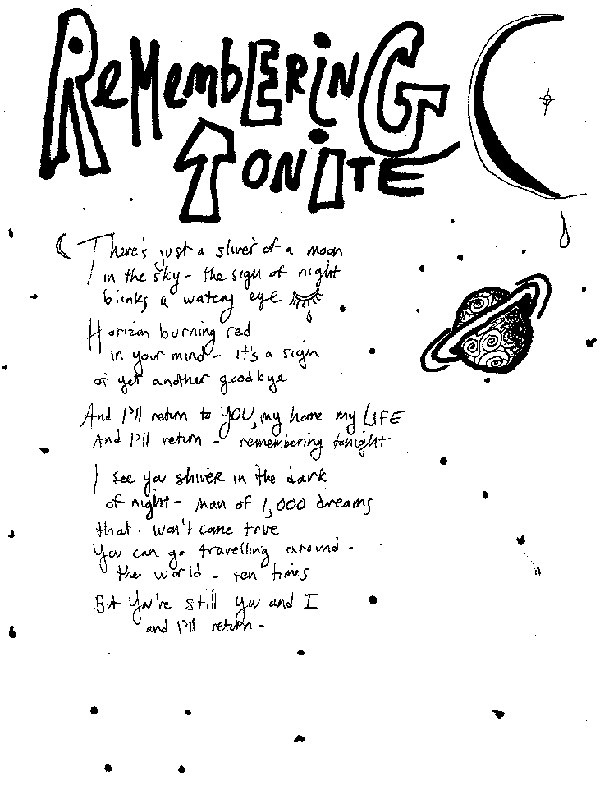 REMEMBERING
TONITE
There's just a sliver of a moon
in the sky - the sign of night
blinks a watery eye
Horizon burning red
in your mind - it's a sign
of yet another goodbye
And I'll return to YOU, my home my LIFE
And I'll return - remembering tonight
I see you shiver in the dark
of night - man of 1,000 dreams
that won't come true
You can go travelling around -
the world - ten times
But You're still You and I
and I'll return -